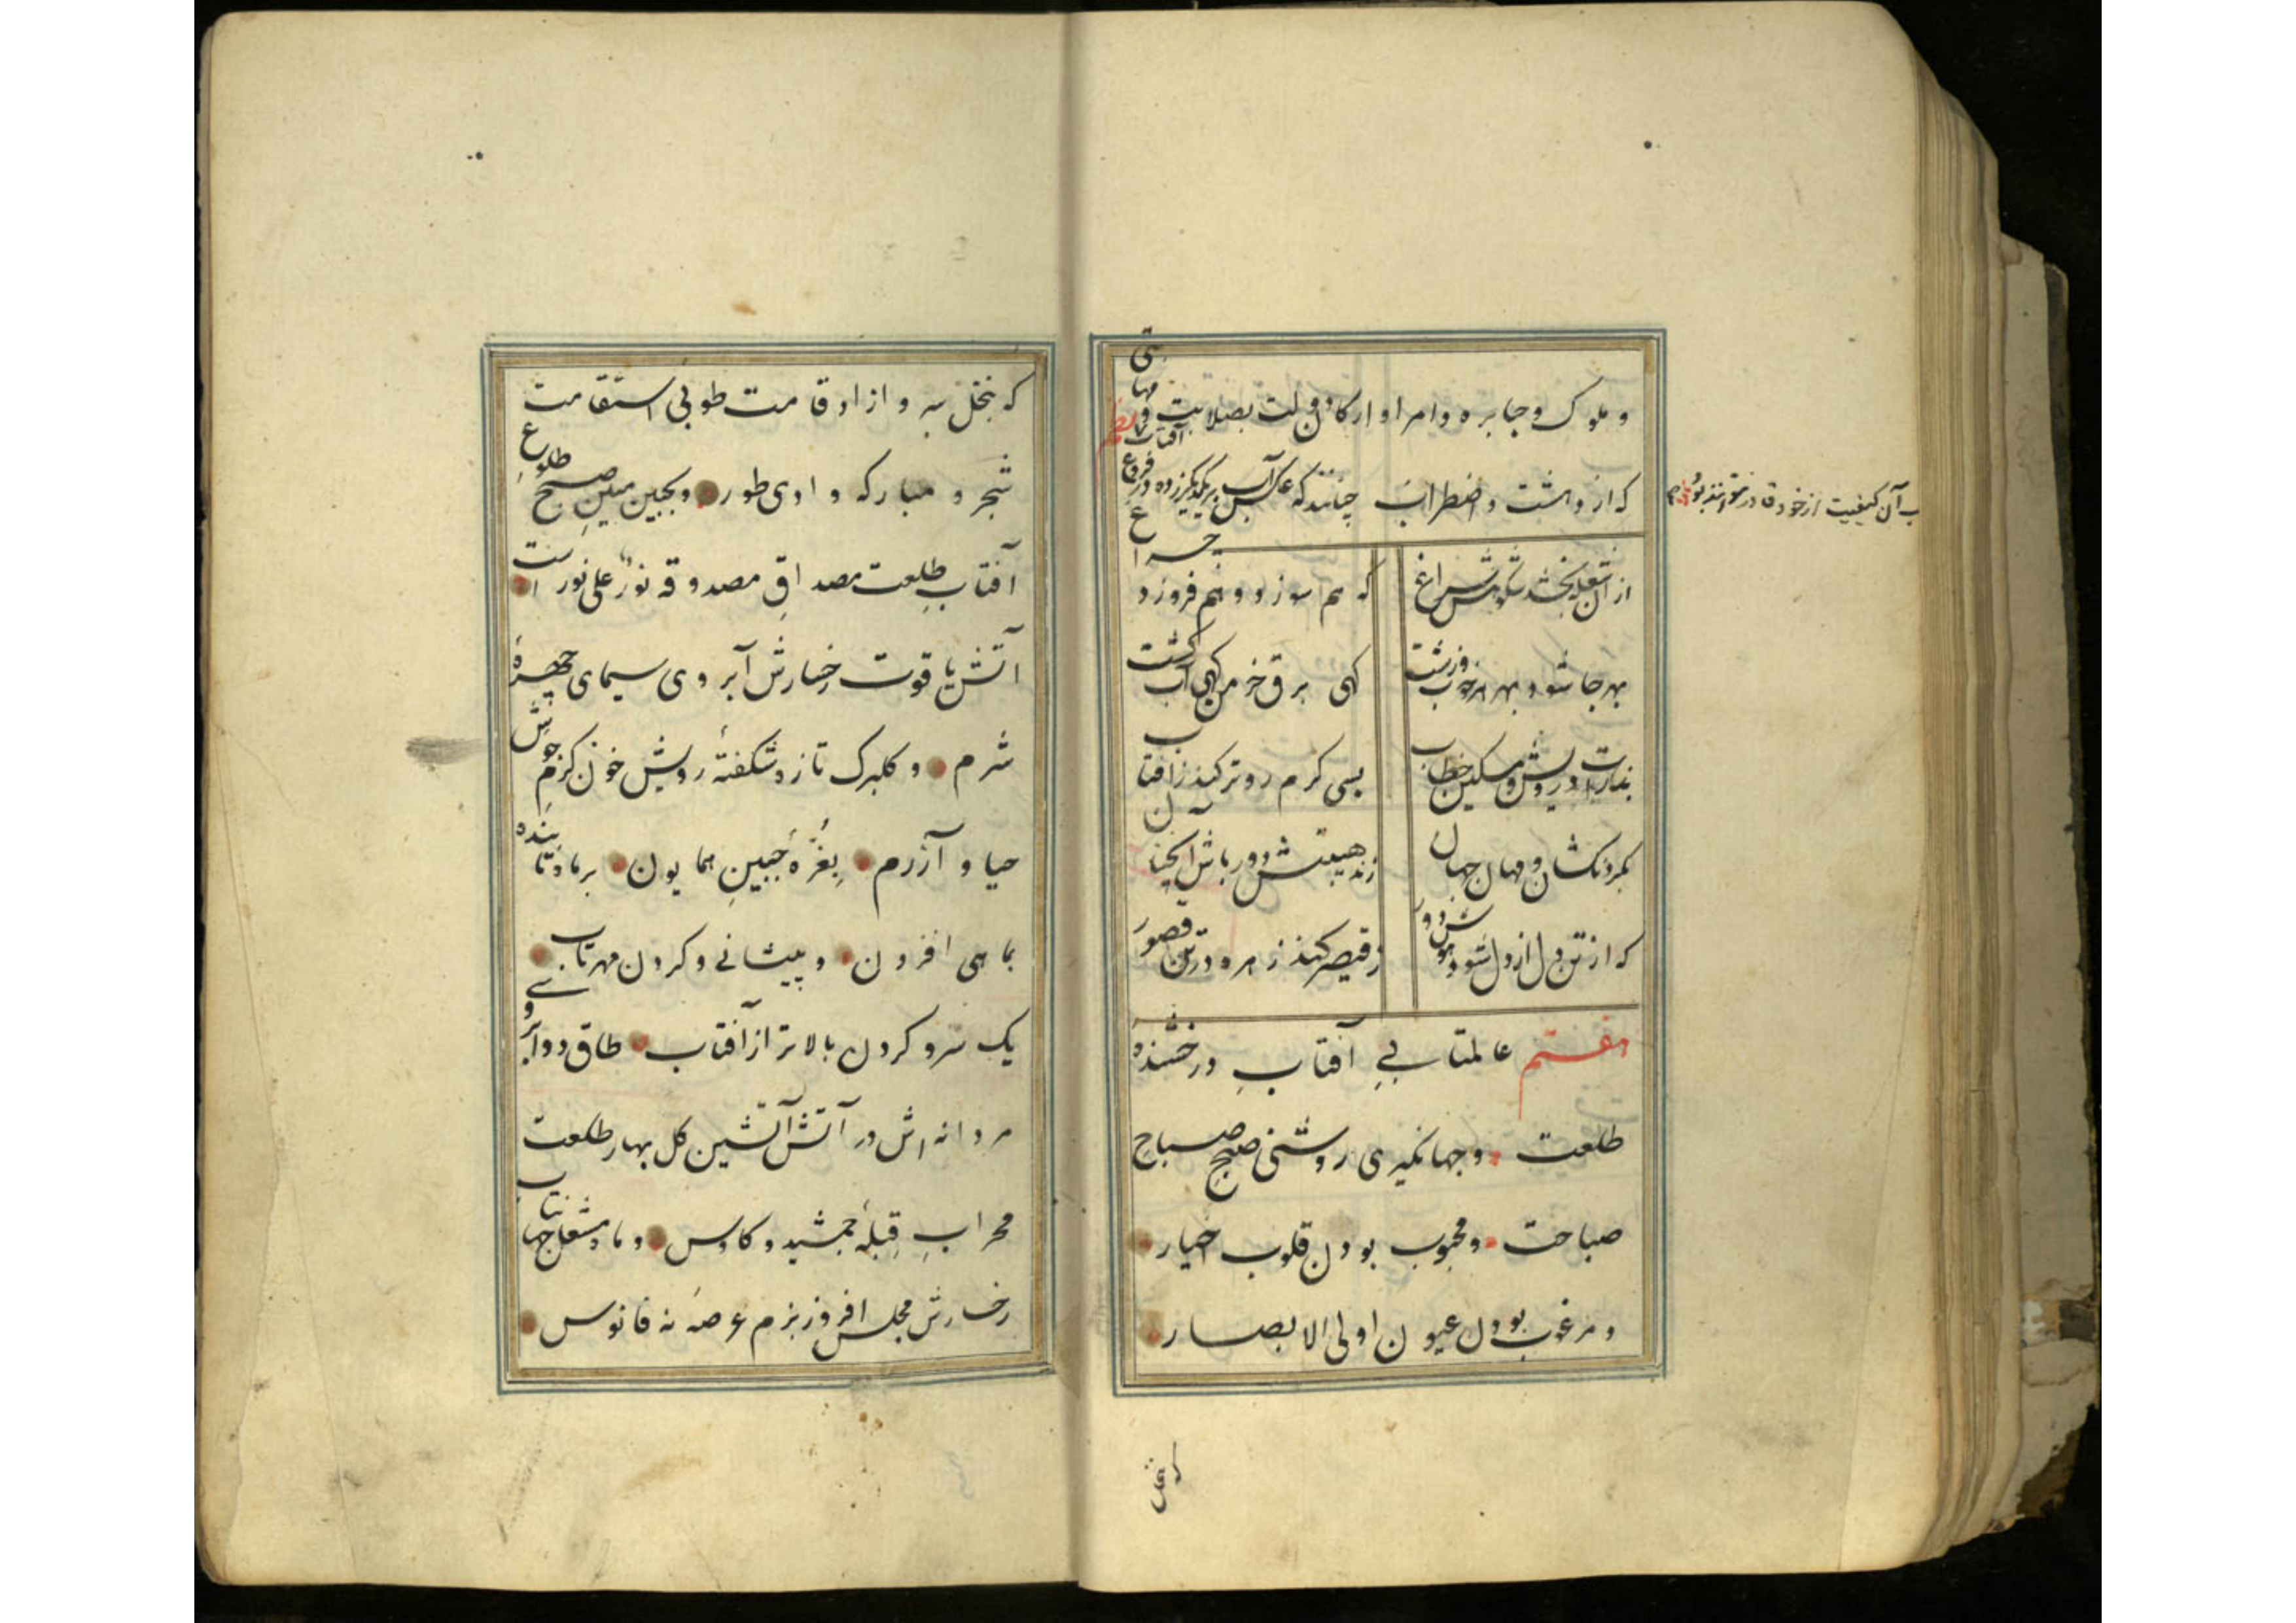 و ملوک و جبابره و امرا و ارکان دولت بصلابت و مهابتی
که از دهشت و اضطراب چنانند که عکس آب بر یکدیگر زده
از آن شعله بخشد شکوهش سراغ
که هم سوزد و هم فروزد چراغ
بهر جا شود بهر هر خوب و زشت
کهی برق خرمن کهی آب کشت
کند با درویش و مسکین خطاب
بسی کرم روتر کند ز افتاب
بگردنکشان و مهان جهان
زند هیبتش دور باش آنچنان
که از تن دل از دل شود هوش دور
ز قیصر کند زهره در تن قصور
هفتم عالمتابیِ آفتابِ درخشندهٔ
طلعت و جهانگیری روشنی صبح صباح
صباحت و محبوب بودن قلوب اخیار
و مرغوب بودن عیون اولی الابصار
که نخل سر و ازاد قامت طوبی استقامت
شجر و مبارکه وادی طور و بجبین مبینِ صبح طلوع
آفتابِ طلعت مصداقِ مصدوقه نورٌ علی نور است
آتش یاقوت رخسارش آبروی سیمای چهرهٔ
شرم و کلبرک تازه شکفتهٔ رویش خون کرم جوشِ
حیا و آزرم بغرّهٔ جبینِ همایون بر ماه تابنده
بماهی افزون و پیشانی و کردن مهرتابی
یک سر و کردن بالاتر از آفتاب طاق دو ابرو
مردانه اش در آتش آتشین کل بهار طلعت
محرابِ قبلهٔ جمشید و کاوس و ماه مشعل جهانتاب
رخسارش مجلس افروز بزم عرصهٔ نه فانوس